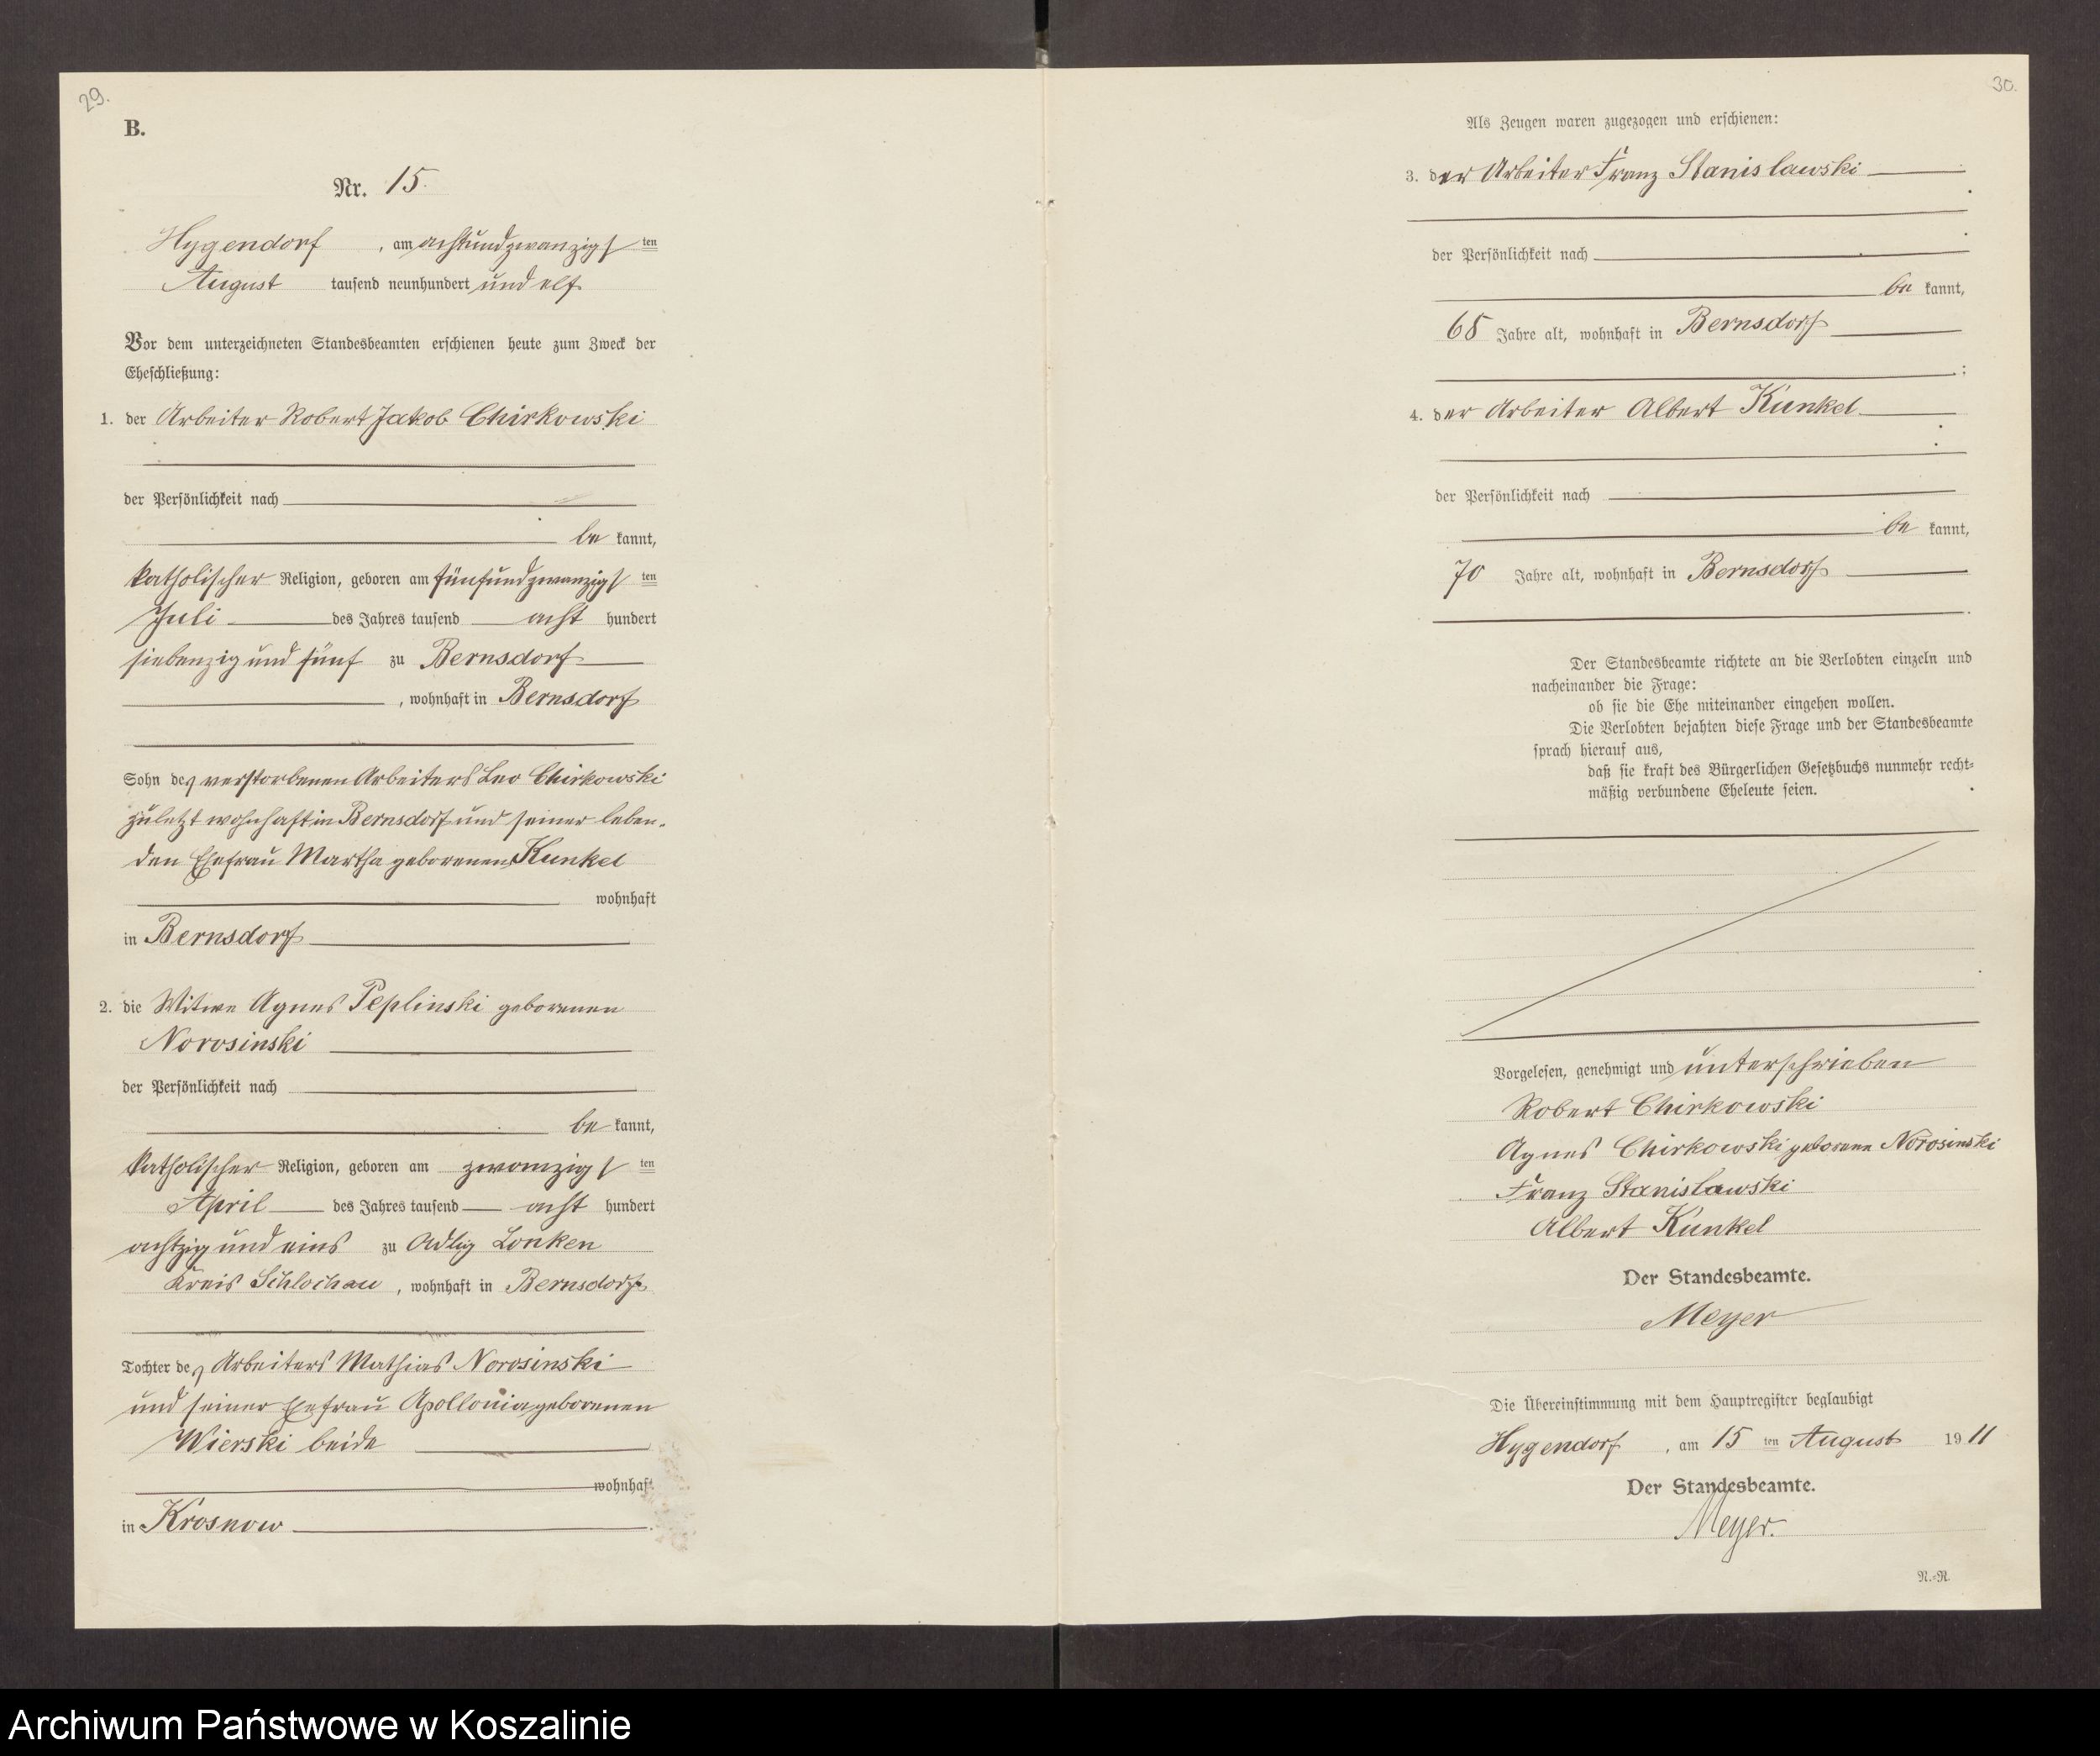 29.
B.
Nr. 15.
Hygendorf, am achtundzwanzigsten
August tausend neunhundert und elf.
Vor dem unterzeichneten Standesbeamten erschienen heute zum Zweck der
Eheschließung:
1. der Arbeiter Robert Jakob Chirkowski
der Persönlichkeit nach
be kannt,
katholischer Religion, geboren am fünfundzwanzigsten
Juli des Jahres tausend acht hundert
siebenzig und fünf zu Bernsdorf
, wohnhaft in Bernsdorf
Sohn des verstorbenen Arbeiters Leo Chirkowski
zuletzt wohnhaft in Bernsdorf und seiner leben-
den Ehefrau Martha geborenen Kunkel
wohnhaft
in Bernsdorf
2. die Witwe Agnes Peplinski geborenen
Norosinski
der Persönlichkeit nach
be kannt,
katholischer Religion, geboren am zwanzigsten
April des Jahres tausend acht hundert
achtzig und eins zu Adlig Lonken
Kreis Schlochau, wohnhaft in Bernsdorf
Tochter des Arbeiters Mathias Norosinski
und seiner Ehefrau Apollonia geborenen
Wierski beide
wohnhaft
in Krosnow
30.
Als Zeugen waren zugezogen und erschienen:
3. der Arbeiter Franz Stanislawski
der Persönlichkeit nach
be kannt,
65 Jahre alt, wohnhaft in Bernsdorf
;
4. der Arbeiter Albert Kunkel
der Persönlichkeit nach
be kannt,
70 Jahre alt, wohnhaft in Bernsdorf
Der Standesbeamte richtete an die Verlobten einzeln und
nacheinander die Frage:
ob sie die Ehe miteinander eingehen wollen.
Die Verlobten bejahten diese Frage und der Standesbeamte
sprach hierauf aus,
daß sie kraft des Bürgerlichen Gesetzbuchs nunmehr recht-
mäßig verbundene Eheleute seien.
Vorgelesen, genehmigt und unterschrieben
Robert Chirkowski
Agnes Chirkowski geborene Norosinski
Franz Stanislawski
Albert Kunkel
Der Standesbeamte.
Meyer
Die Übereinstimmung mit dem Hauptregister beglaubigt
Hygendorf, am 15 ten August 1911
Der Standesbeamte.
Meyer.
N.-R.
Archiwum Państwowe w Koszalinie